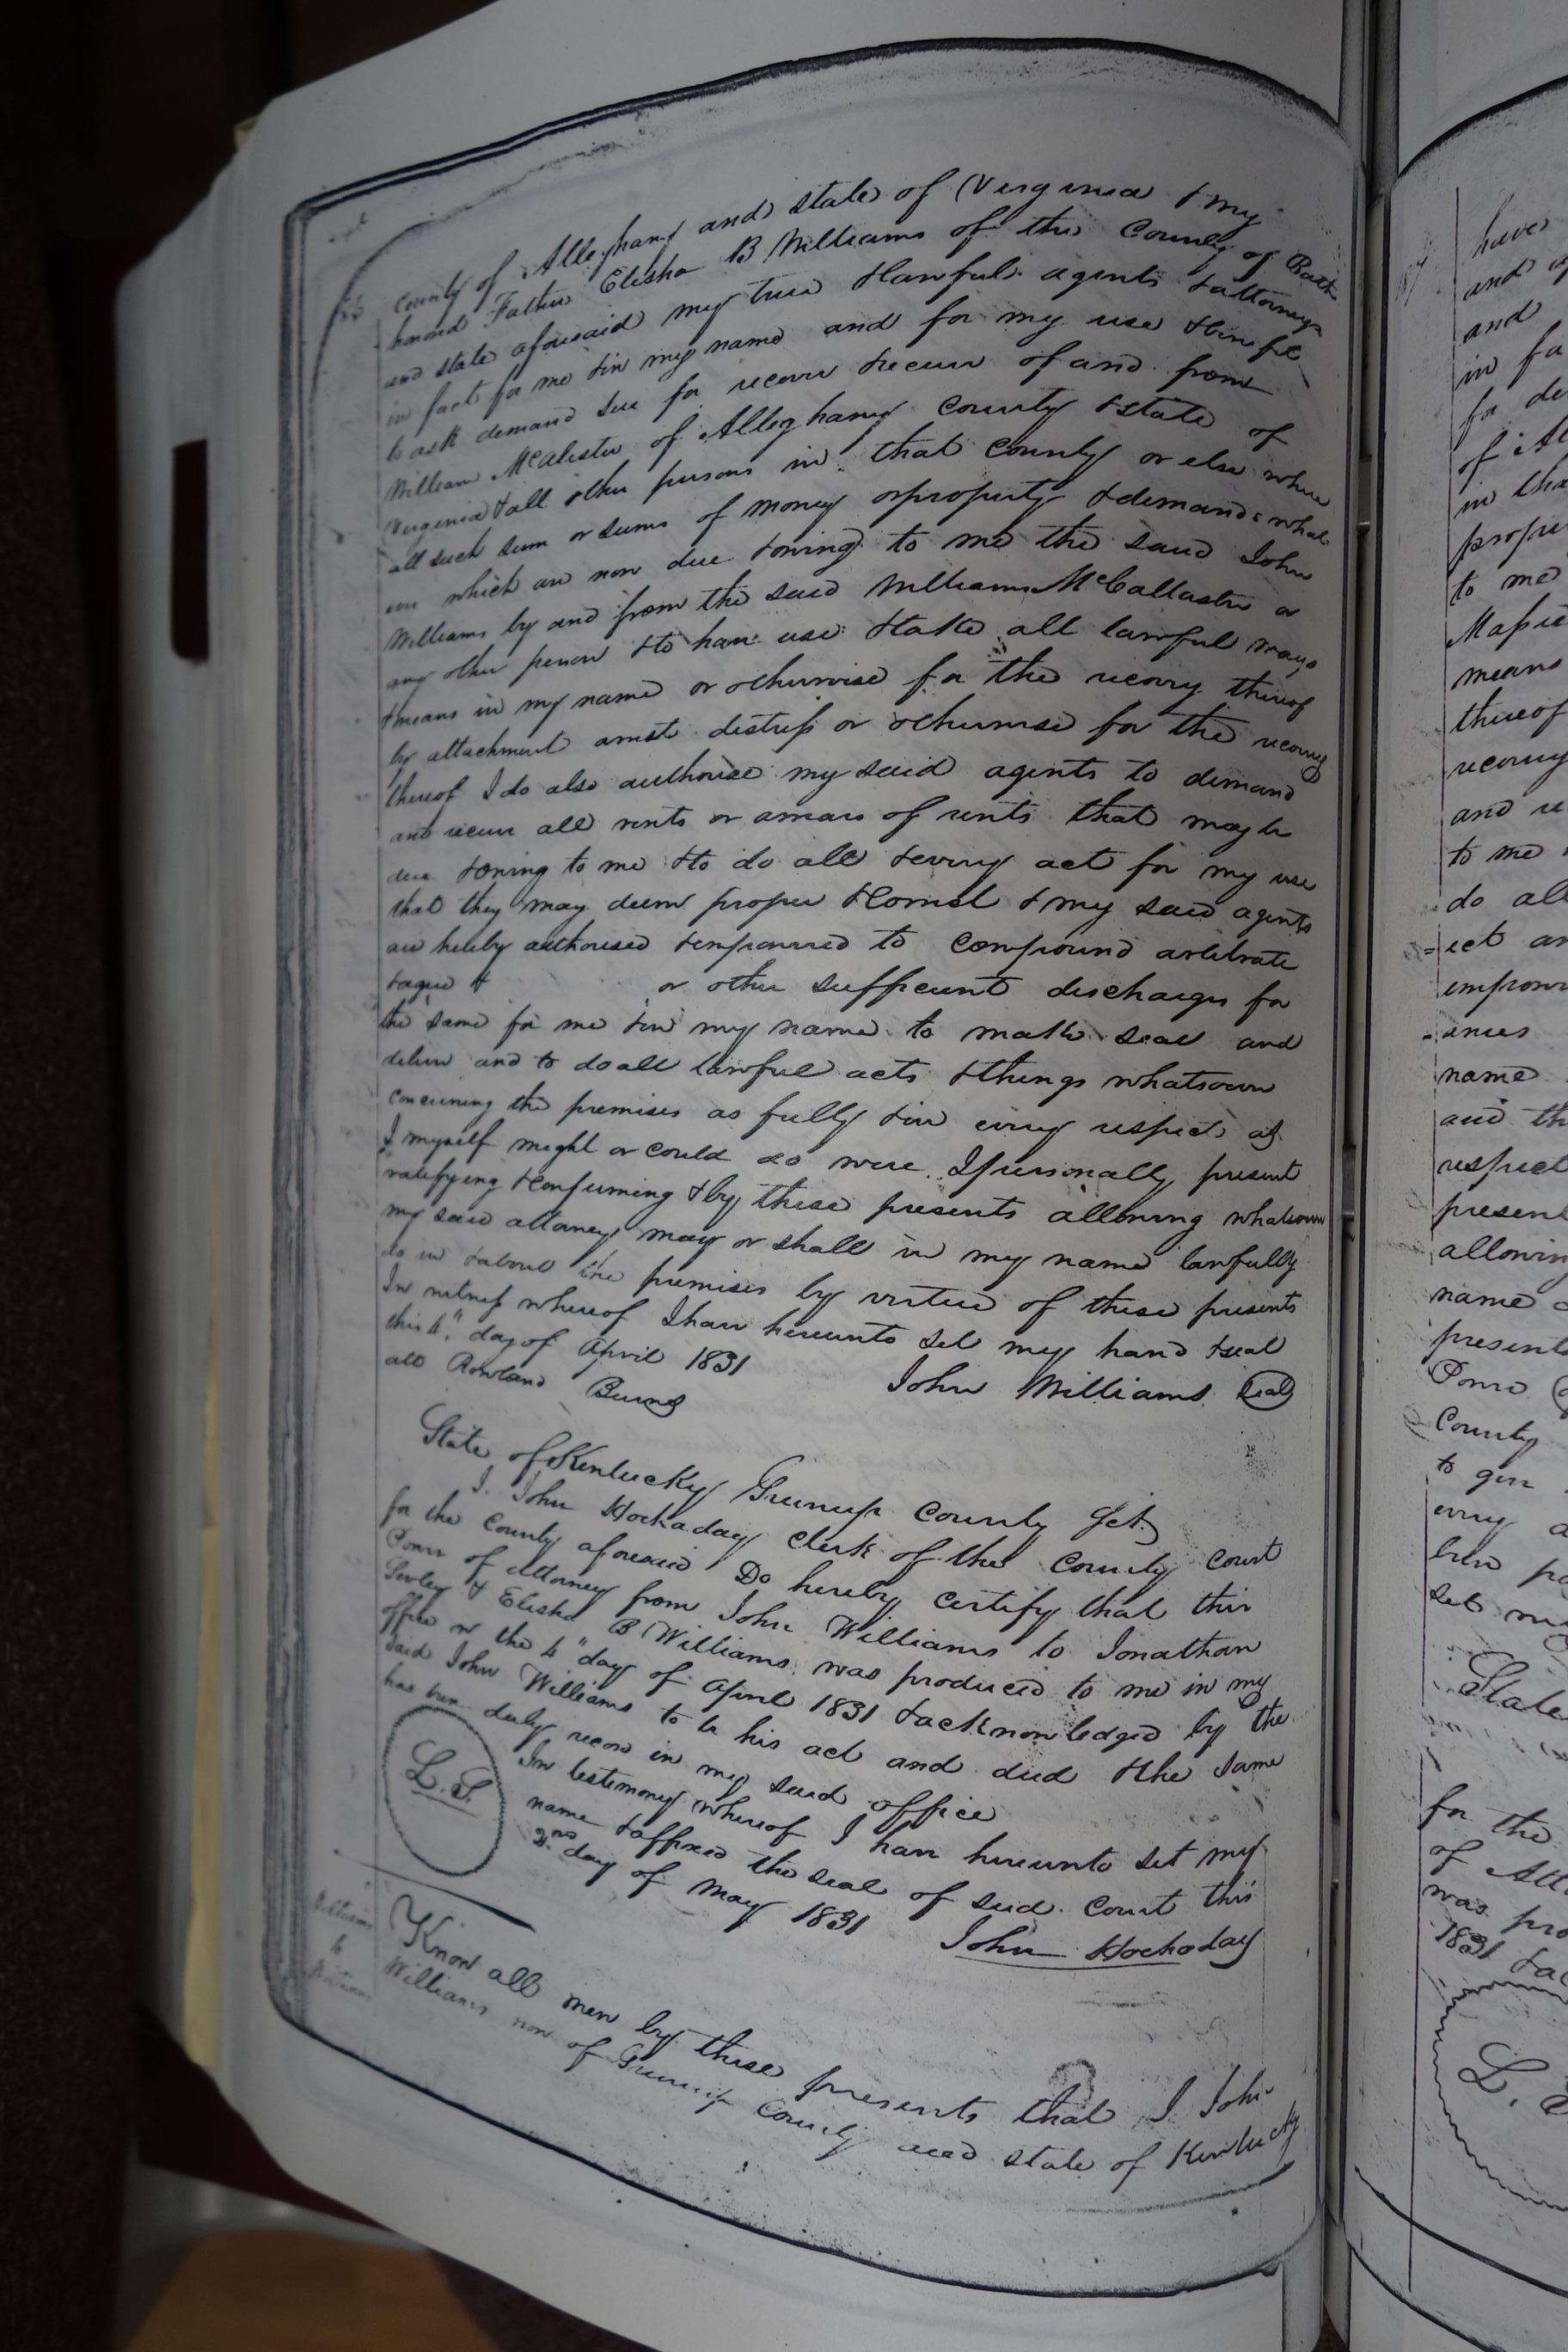 County of Alleghany and state of Virginia & my
honord Father Elisha B Williams of the County of Bath
and state aforesaid my true & lawful agents & attorneys
in fact for me & in my name and for my use & benefit
to ask demand sue for recover & receive of and from
William McAlister of Alleghany County & state of
Virginia & all other persons in that County or else where
all such sum or sums of money or property & demands what
ever which are now due & owing to me the said John
Williams by and from the said William McCallaster or
any other person & to have use & take all lawful ways
& means in my name or otherwise for the recovry thereof
by attachment arrest distress or otherwise for the recovry
thereof I do also authorise my said agents to demand
and receive all rents or arrears of rents that may be
due & owing to me & to do all & every act for my use
that they may deem proper & Correct & my said agents
are hereby authorised & empowered to compound arbitrate
& agree & or other sufficient discharges for
the same for me & in my name to make seal and
deliver and to do all lawful acts & things whatsoever
concerning the premises as fully & in every respect as
I myself might or could do were I personally present
ratifying & confirming & by these presents allowing whatsoever
my said attorneys may or shall in my name lawfully
do in & about the premises by virtue of these presents
In witness whereof I have hereunto set my hand & seal
this 4" day of April 1831
John Williams Seal
att Rowland Burns
State of Kentucky Greenup County Sct.
I. John Hockaday Clerk of the County Court
for the County aforesaid Do hereby certify that this
Power of attorney from John Williams to Jonathan
Sevley & Elisha B Williams was produced to me in my
office on the 4" day of April 1831 & acknowledged by the
said John Williams to be his act and deed & the same
has been duly record in my said office
L.S.
In testimony whereof I have hereunto set my
name & affixed the seal of said Court this
2nd day of May 1831
John Hockaday
Williams
to
Know all men by these presents that I John
Williams now of Greenup County and state of Kentucky
have
and
in fa
for de
of Al
in tha
proper
to me
means
thereof
recovry
and re
to me
do all
ect an
empowr
ances
name
and th
respect
present
allowin
name
presents
Power
County
to give
every a
been pa
set my
State
for the
of Atto
was pro
1831 & ac
L. S